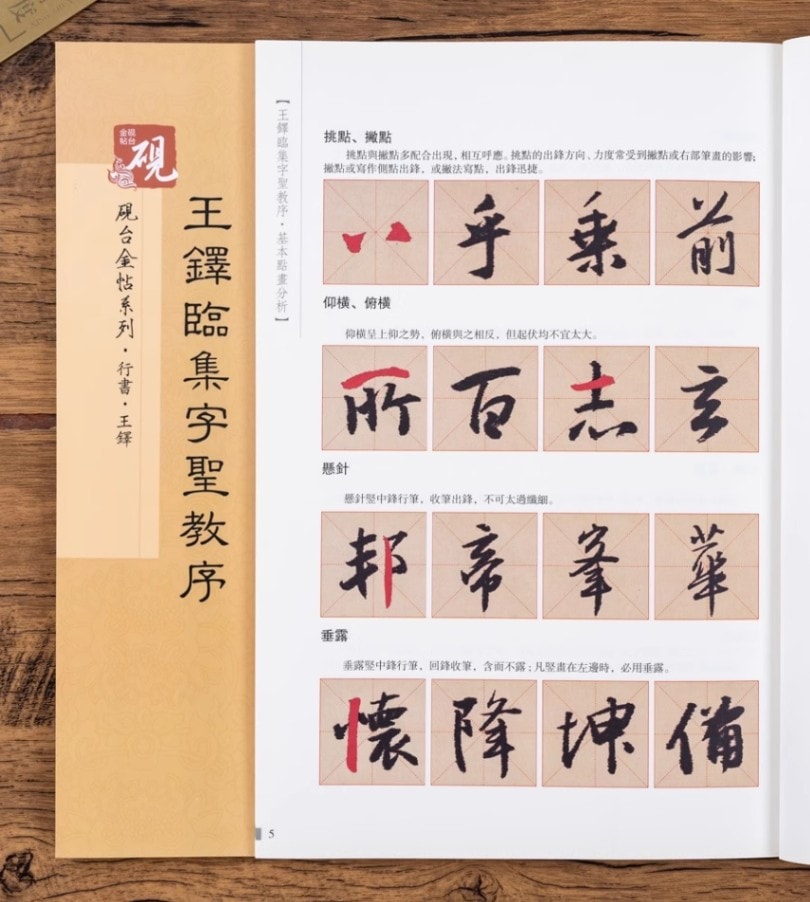 金帖
硯台
硯
王鐸臨集字聖教序
硯台金帖系列·行書·王鐸
【王鐸臨集字聖教序·基本點畫分析】
挑點、撇點
挑點與撇點多配合出現，相互呼應。挑點的出鋒方向、力度常受到撇點或右部筆畫的影響；
撇點或寫作側點出鋒，或撇法寫點，出鋒迅捷。
乎 乘 前
仰橫、俯橫
仰橫呈上仰之勢，俯橫與之相反，但起伏均不宜太大。
所 百 志 玄
懸針
懸針竪中鋒行筆，收筆出鋒，不可太過纖細。
邦 帝 峯 華
垂露
垂露竪中鋒行筆，回鋒收筆，含而不露；凡竪畫在左邊時，必用垂露。
懷 降 坤 備
5